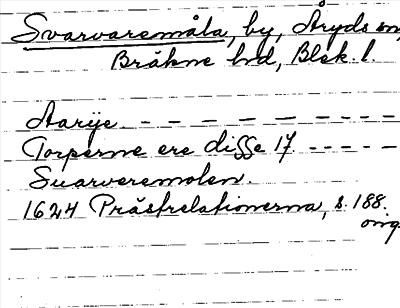 Svarvaremåla, by, Åryds sn,
Bräkne hd, Blek. l.
Aarije - - - - - - - - -
Torperne ere disse 17 - - - - -
Suarveremolen.
1624 Prästrelationerna, s. 188.
orig.